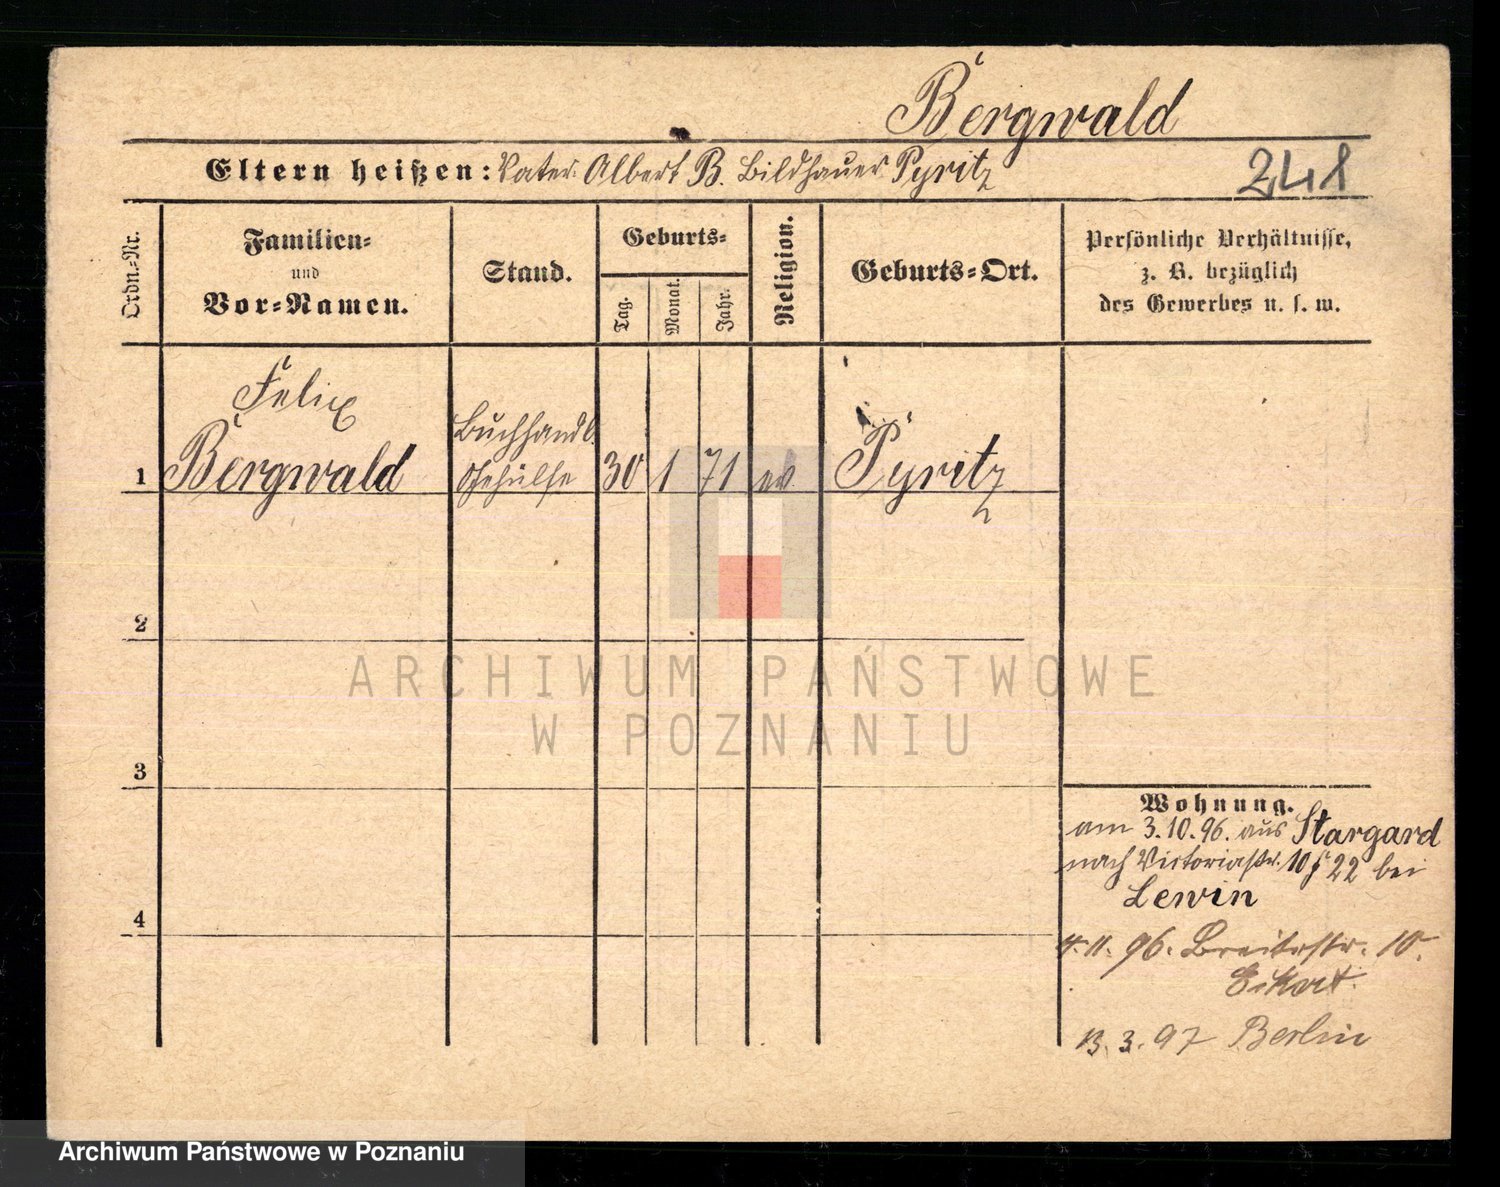 Bergwald
Eltern heißen: Vater Albert B. Bildhauer Pyritz
248
Ordn.-Nr.
Familien-
und
Vor-Namen.
Stand.
Geburts-
Tag.
Monat.
Jahr.
Religion.
Geburts-Ort.
Persönliche Verhältnisse,
z. B. bezüglich
des Gewerbes u. s. w.
Felix
Buchhandl.
1 Bergwald Gehülfe 30 1 71 ev Pyritz
2
3
4
Wohnung.
am 3.10.96. aus Stargard
nach Victoriastr. 10 22 bei
Lewin
4.11.96. Breitestr. 10.
Eckert.
13.3.97 Berlin
ARCHIWUM PAŃSTWOWE
W POZNANIU
Archiwum Państwowe w Poznaniu